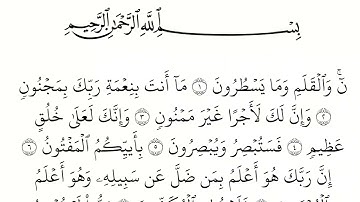 بِسْمِ ٱللَّهِ ٱلرَّحْمَٰنِ ٱلرَّحِيمِ
نٓ وَٱلْقَلَمِ وَمَا يَسْطُرُونَ ١ مَآ أَنتَ بِنِعْمَةِ رَبِّكَ بِمَجْنُونٍ
٢ وَإِنَّ لَكَ لَأَجْرًا غَيْرَ مَمْنُونٍ ٣ وَإِنَّكَ لَعَلَىٰ خُلُقٍ
عَظِيمٍ ٤ فَسَتُبْصِرُ وَيُبْصِرُونَ ٥ بِأَييِّكُمُ ٱلْمَفْتُونُ ٦
إِنَّ رَبَّكَ هُوَ أَعْلَمُ بِمَن ضَلَّ عَن سَبِيلِهِۦ وَهُوَ أَعْلَمُ